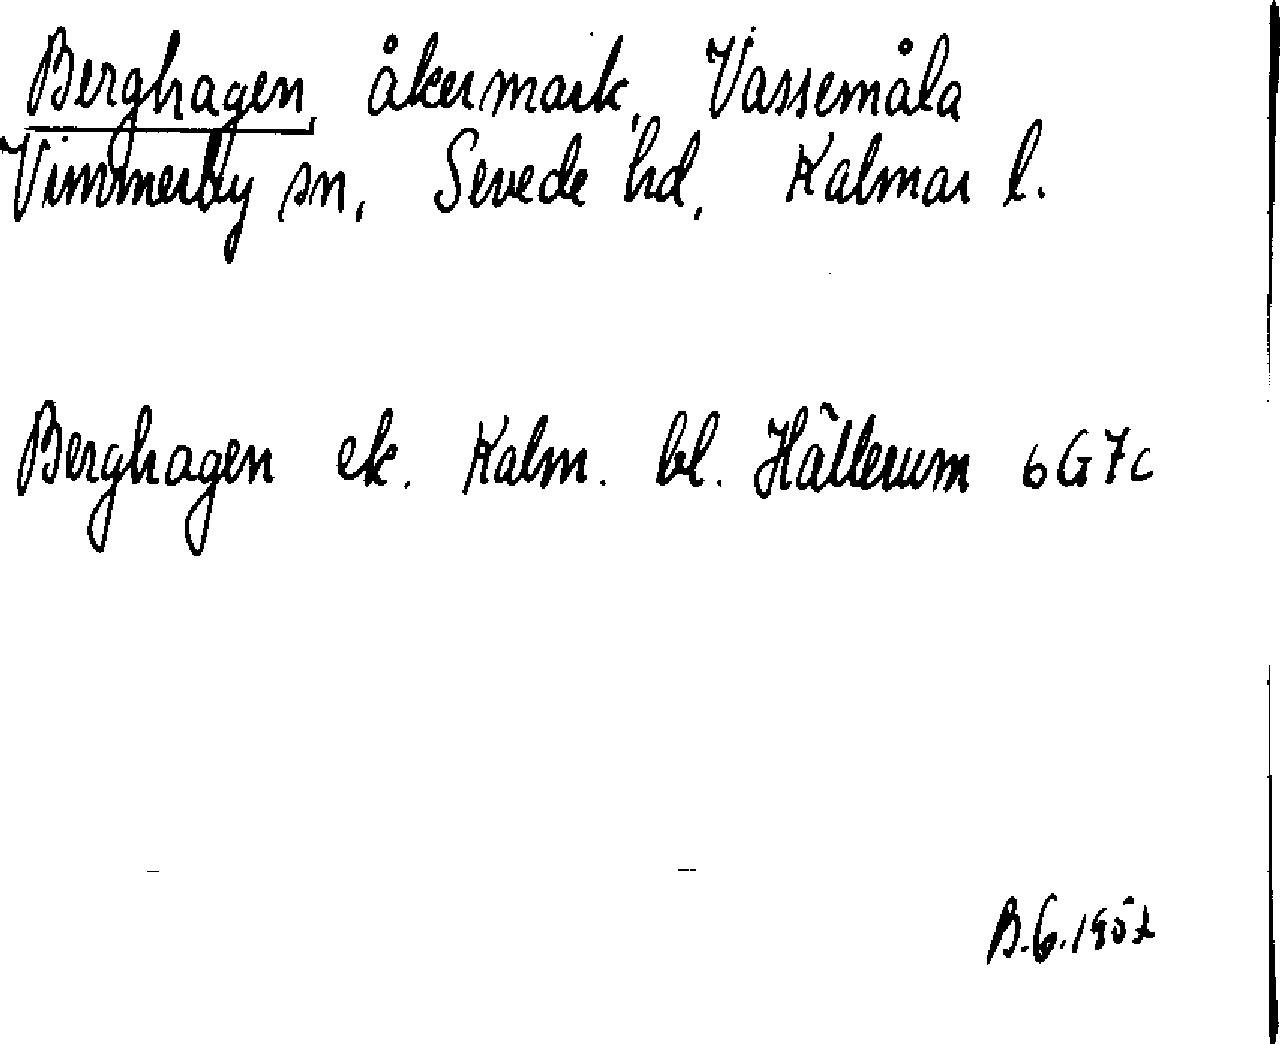 Berghagen, åkermark, Vassemåla
Vimmerby sn, Sevede hd, Kalmar l.
Berghagen ek. Kalm. bl. Hällerum 6G7c
B.G.